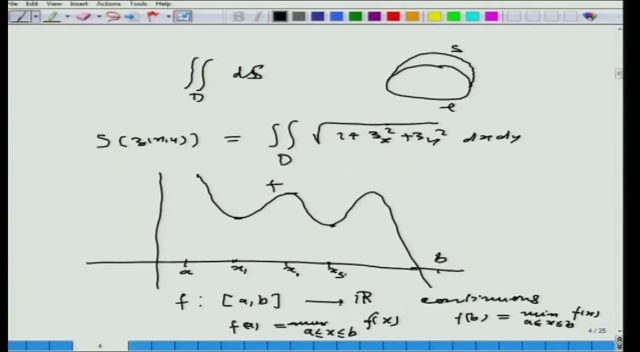 File Edit View Insert Actions Tools Help
∬ ds S
D
S(z(x,y)) = ∬ √(1+z_x^2+z_y^2) dxdy
D
f
a x_1 x_2 x_3 b
f : [a,b] → ℝ continuous
f(a) = max f(x) f(b) = min f(x)
a≤x≤b a≤x≤b
4 / 25
4